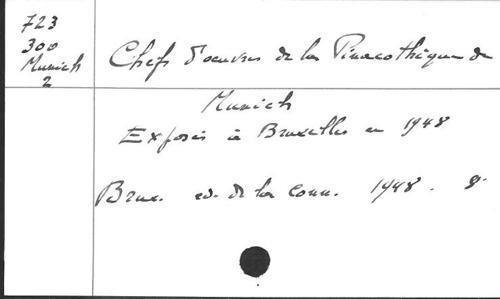 723
300
Munich
2
Chefs d'oeuvres de la Pinacothèque de
Munich
Exposés à Bruxelles en 1948
Brux. ed. de la Conn. 1948. 8°